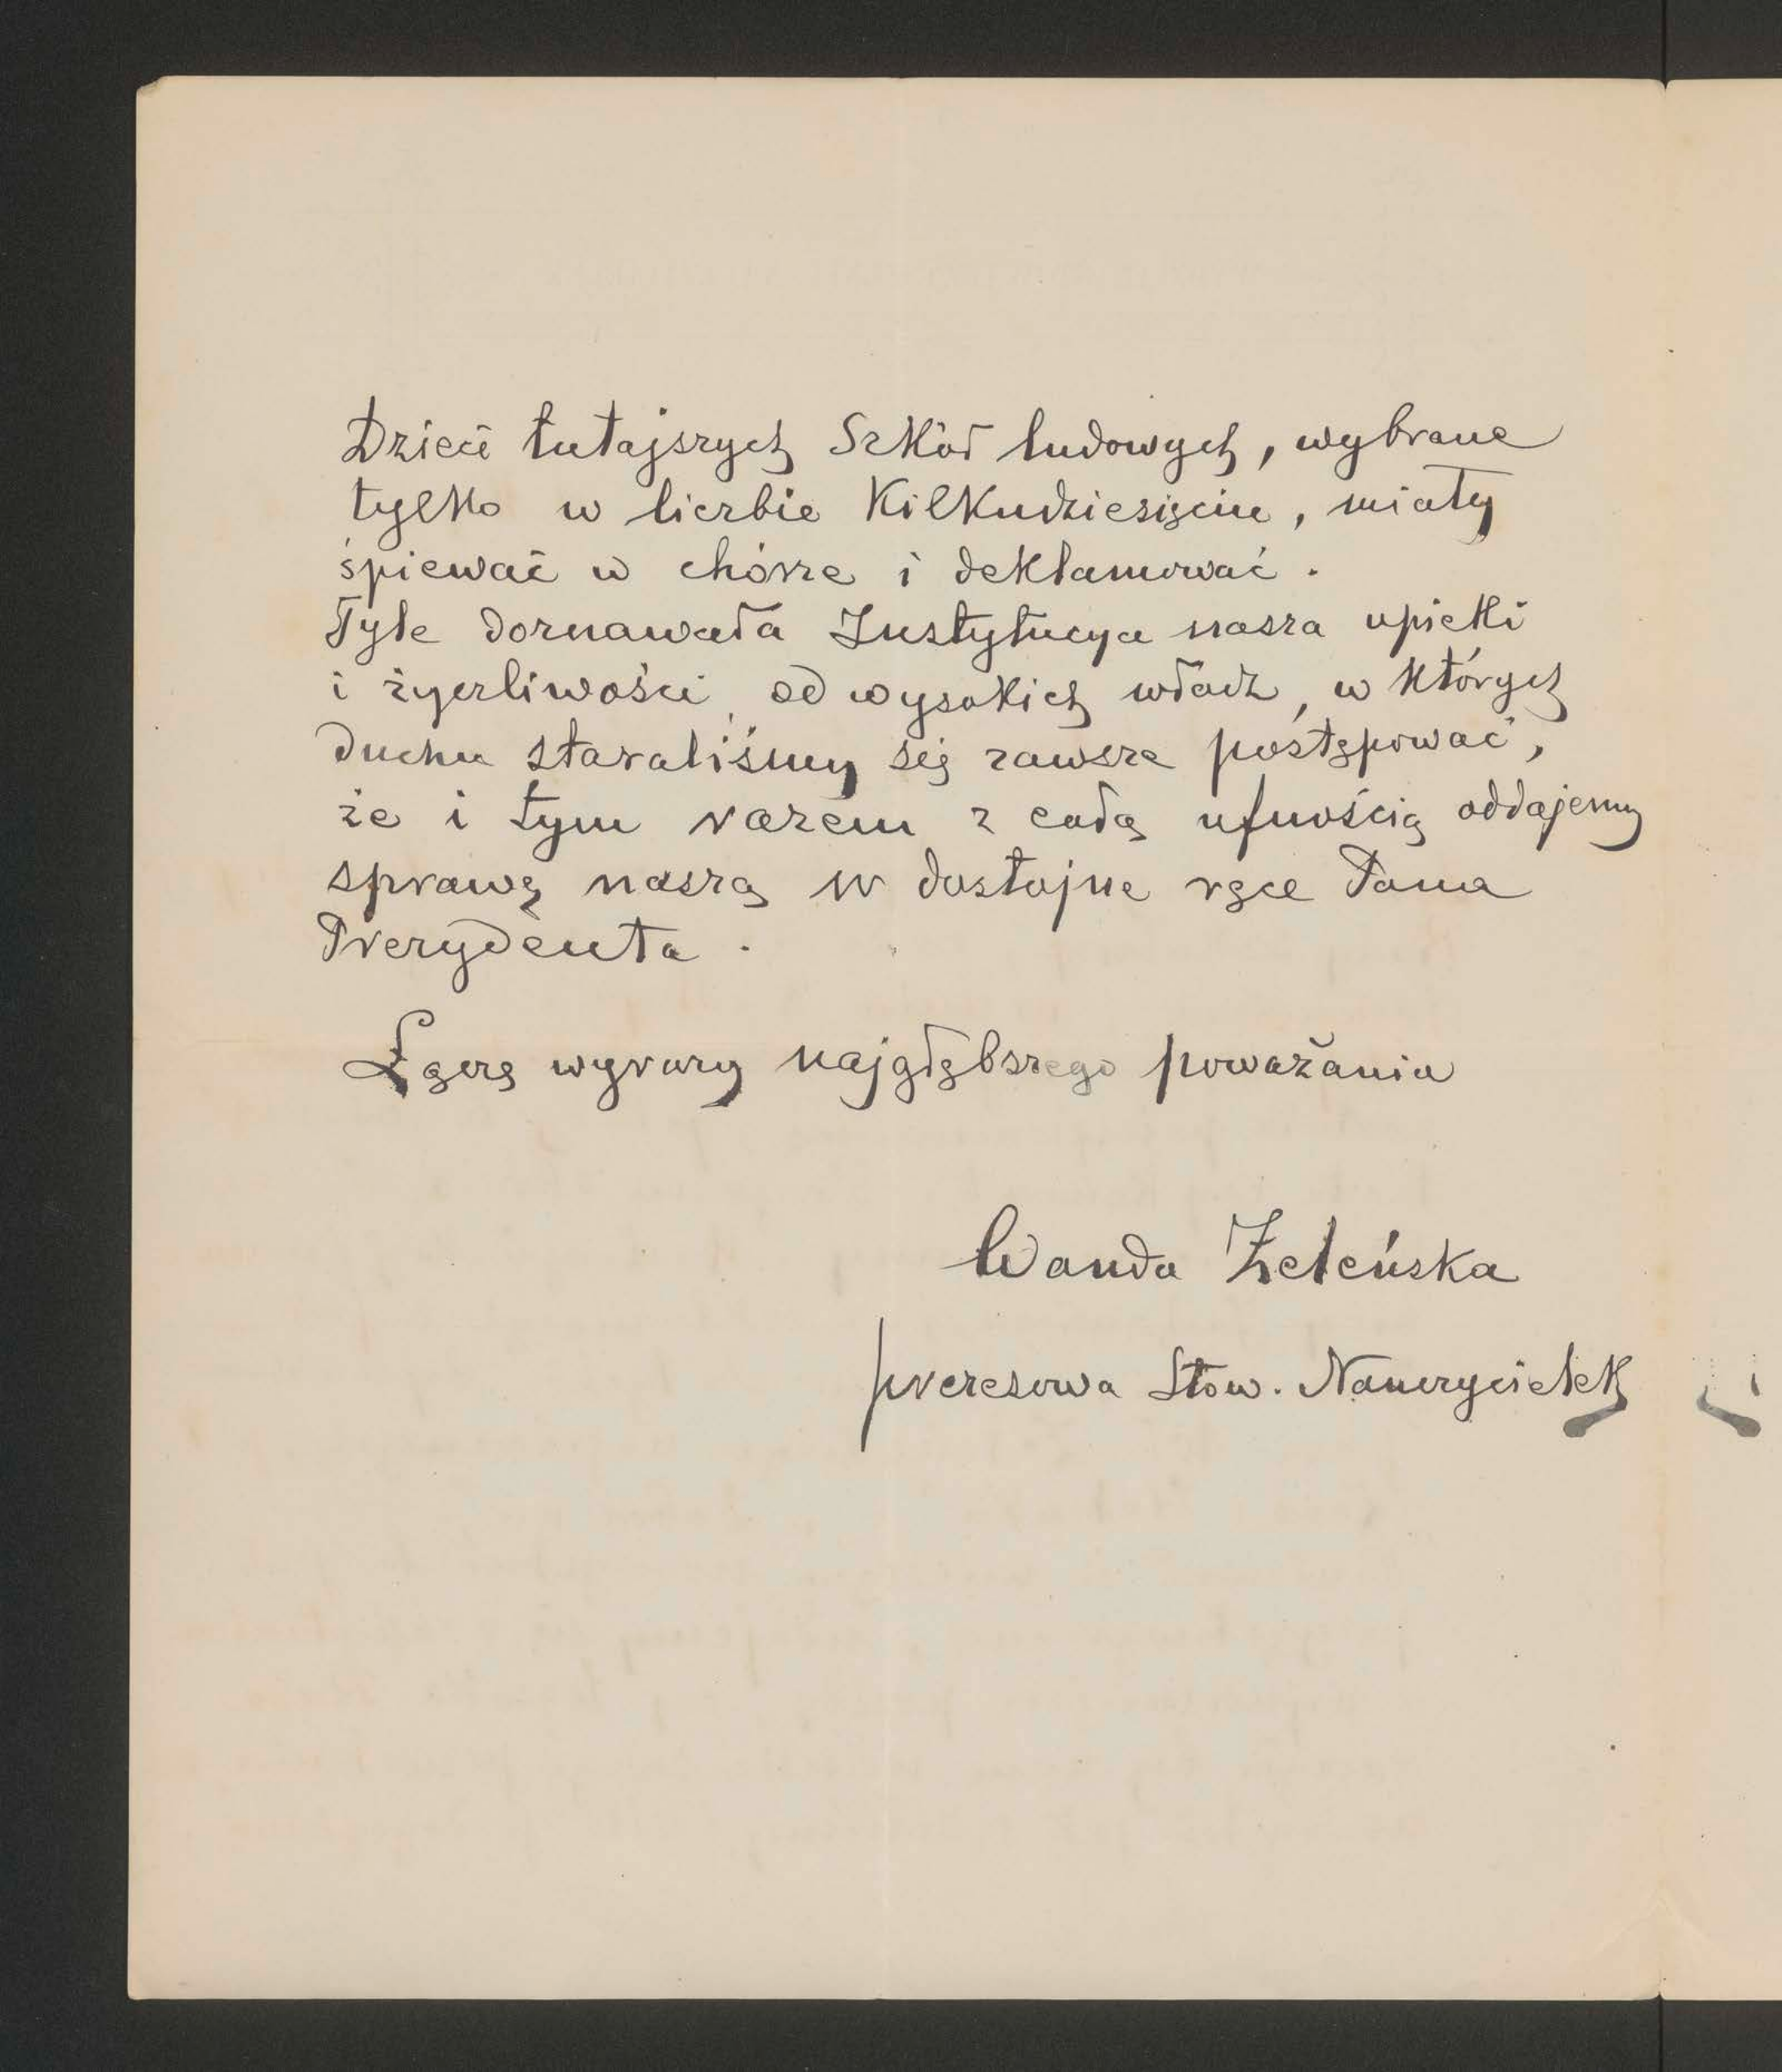 Dzieci tutajszych Szkół ludowych, wybrane
tylko w liczbie Kilkudziesięciu, miały
śpiewać w chórze i deklamować.
Tyle doznawała Instytucya nasza opieki
i życzliwości od wysokich władz, w których
duchu staraliśmy się zawsze postępować,
że i tym razem z całą ufnością oddajemy
sprawę naszą w dostojne ręce Pana
Prezydenta.
Łączę wyrazy najgłębszego poważania
Wanda Żeleńska
prezesowa Stow. Nauczycielek